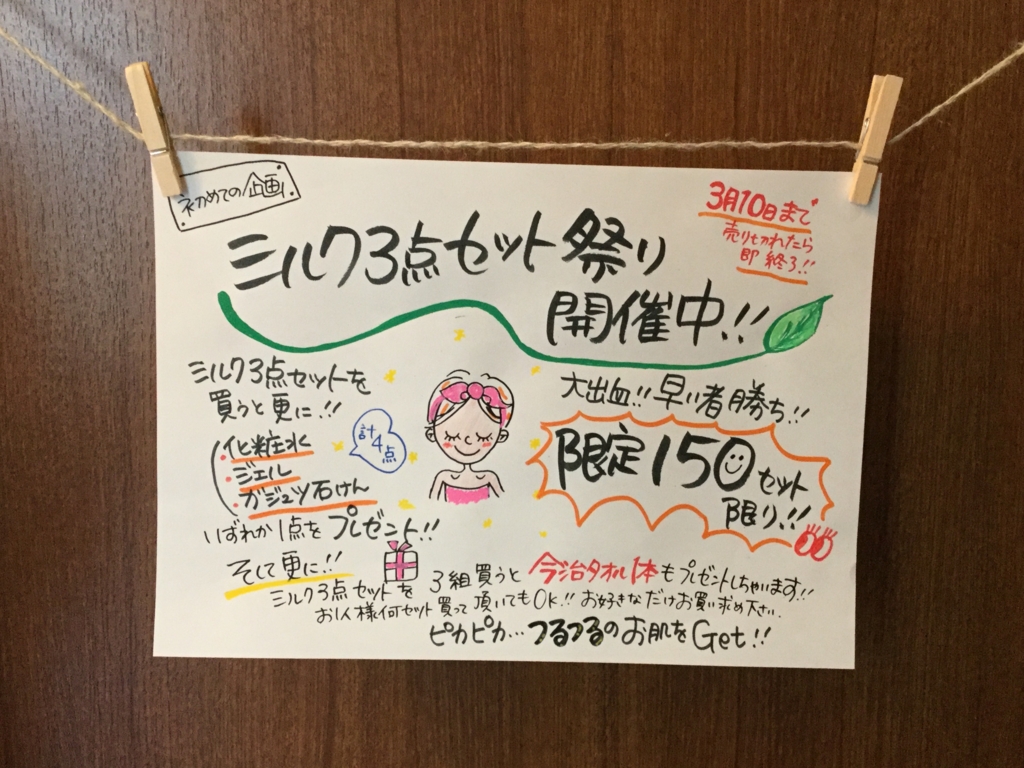 初めての企画
3月10日まで
売り切れたら
即終了!!
ミルク3点セット祭り
開催中!!
ミルク3点セットを
買うと更に!!
・化粧水
・ジェル
・ガジュツ石けん
計4点
いずれか1点をプレゼント!!
大出血!!早い者勝ち!!
限定150セット
限り!!
そして更に!!
ミルク3点セットを3組買うと今治タオル1本もプレゼントしちゃいます!!
お1人様何セット買って頂いてもOK!!お好きなだけお買い求め下さい.
ピカピカ…つるつるのお肌をGet!!